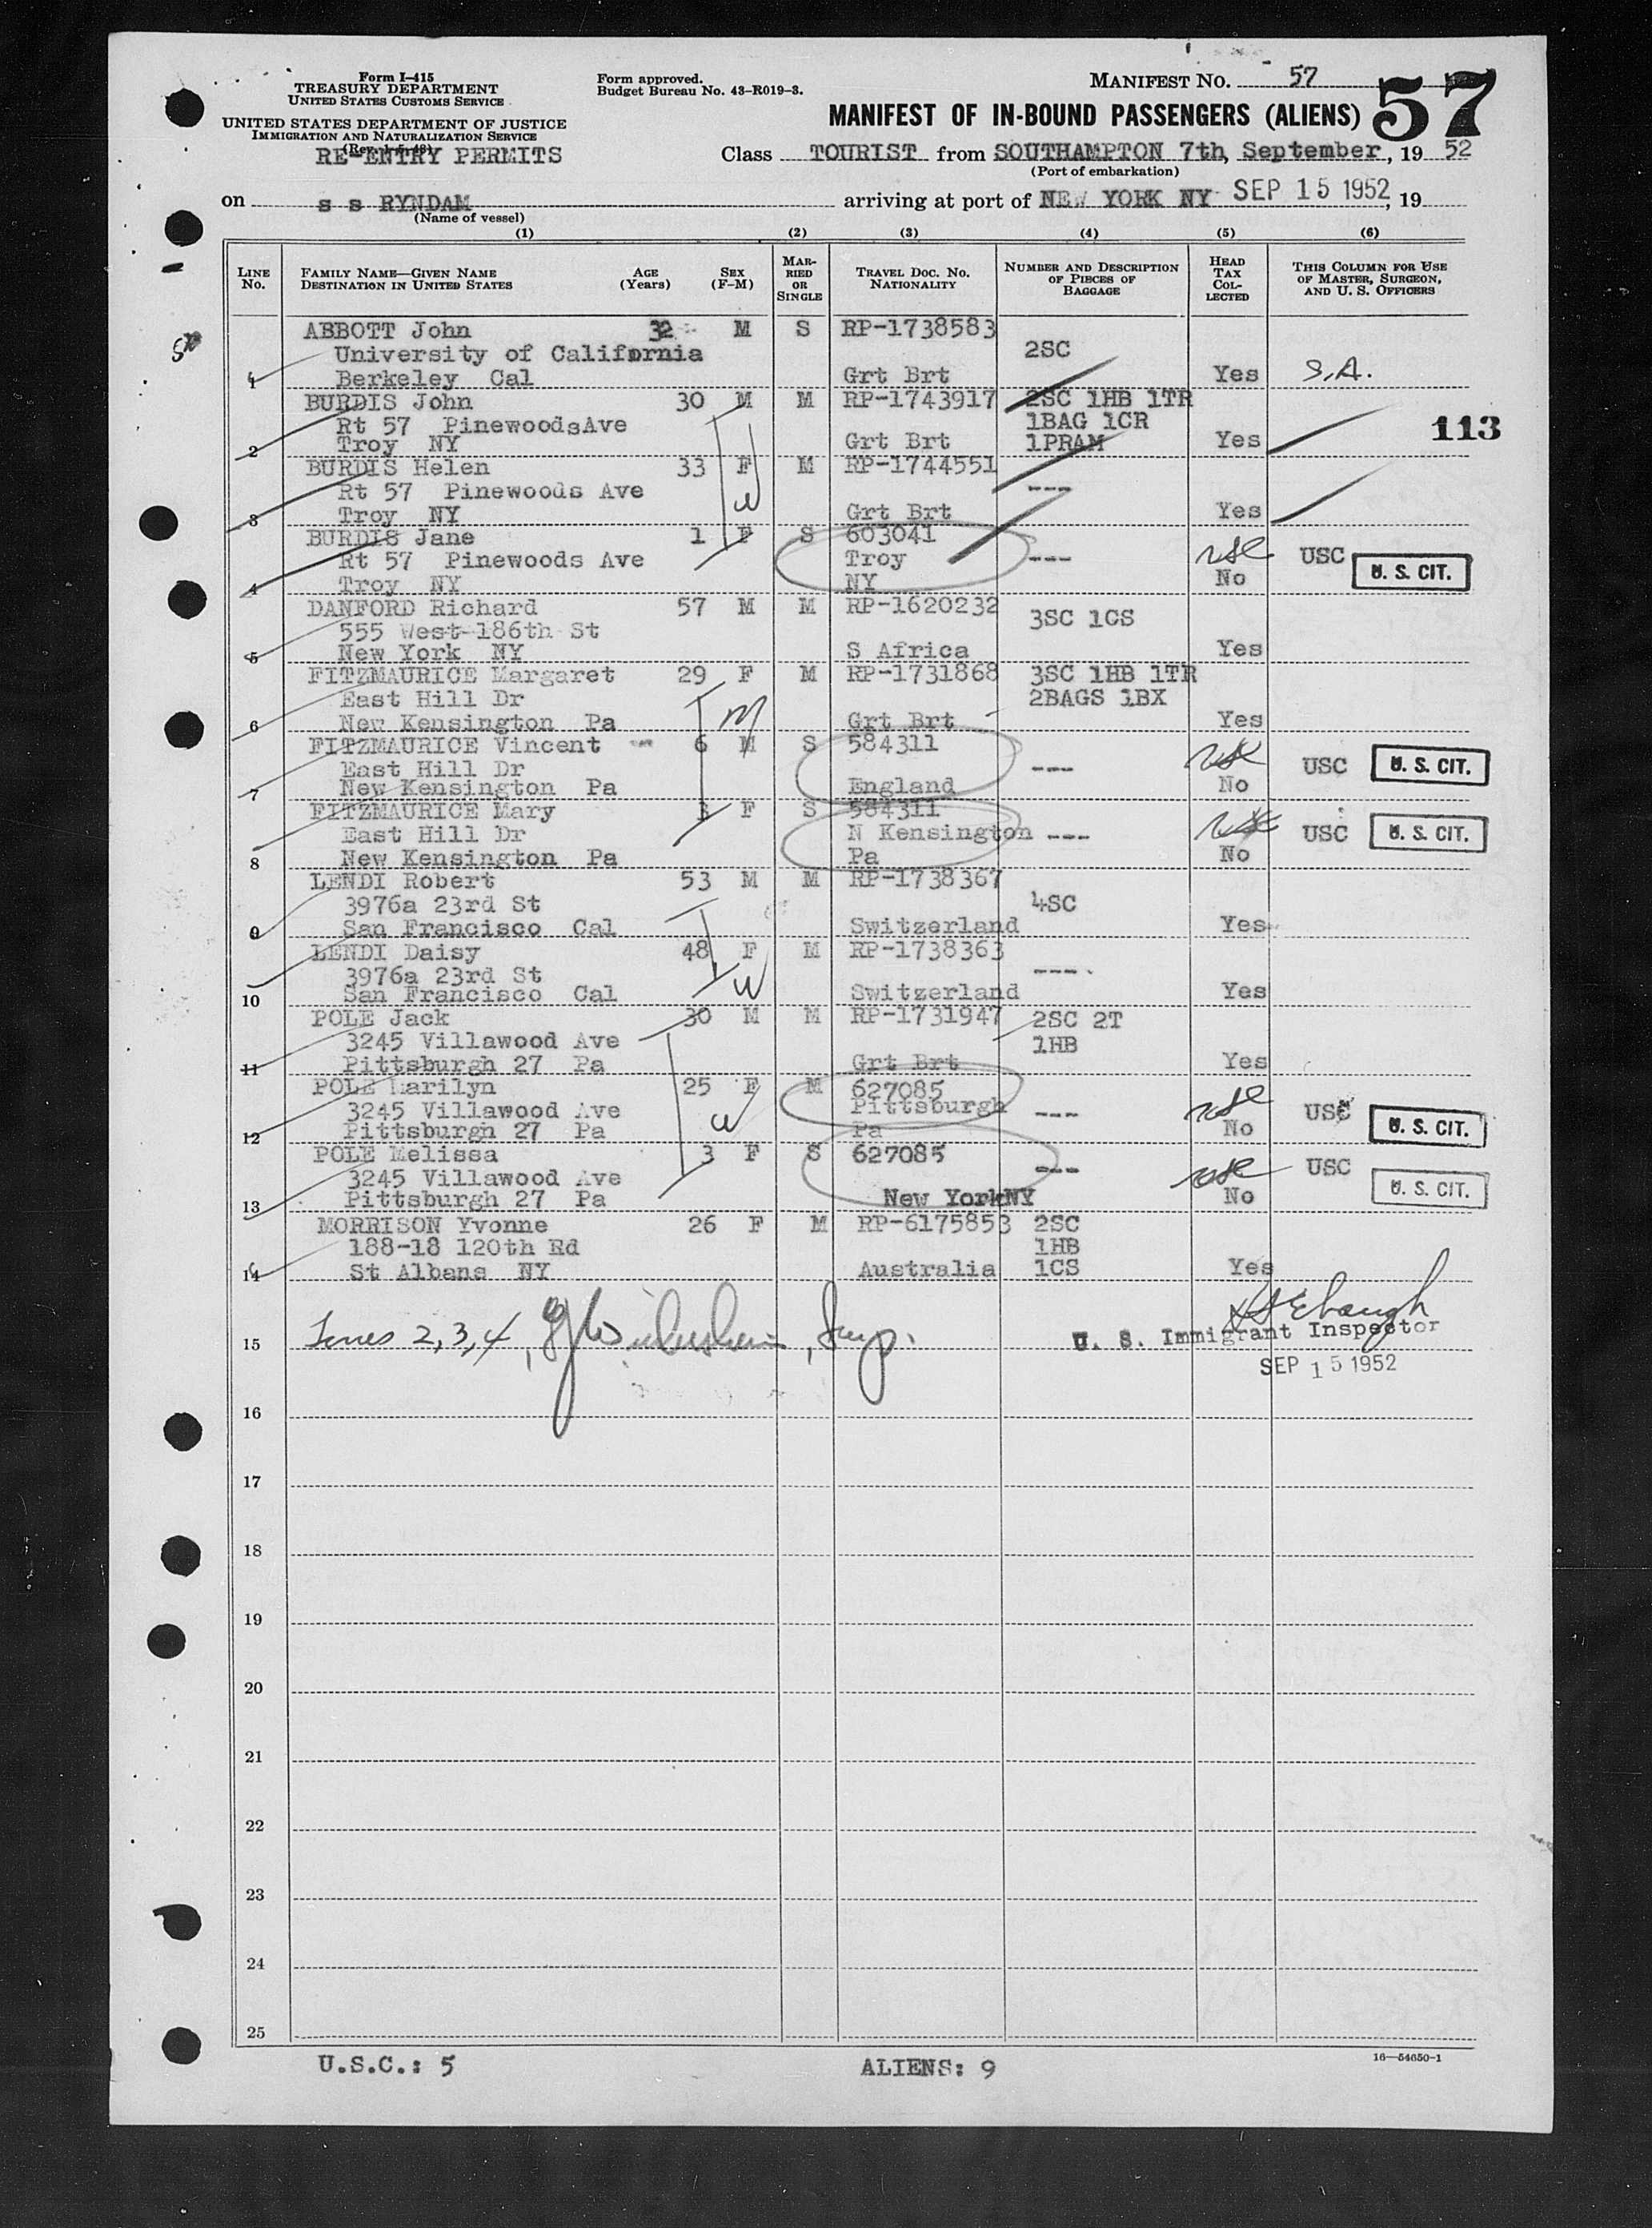 Form I-415
TREASURY DEPARTMENT
UNITED STATES CUSTOMS SERVICE
UNITED STATES DEPARTMENT OF JUSTICE
IMMIGRATION AND NATURALIZATION SERVICE
RE-ENTRY PERMITS
Form approved.
Budget Bureau No. 43-R019-3.
MANIFEST NO. 57
57
MANIFEST OF IN-BOUND PASSENGERS (ALIENS)
Class TOURIST from SOUTHAMPTON 7th, September, 19 52
(Port of embarkation)
on s s RYNDAM arriving at port of NEW YORK NY SEP 15 1952, 19
(Name of vessel)
(1) (2) (3) (4) (5) (6)
LINE No. FAMILY NAME—GIVEN NAME DESTINATION IN UNITED STATES AGE (Years) SEX (F-M) MARRIED OR SINGLE TRAVEL DOC. NO. NATIONALITY NUMBER AND DESCRIPTION OF PIECES OF BAGGAGE HEAD TAX COLLECTED THIS COLUMN FOR USE OF MASTER, SURGEON, AND U. S. OFFICERS
ABBOTT John 32 M S RP-1738583
University of California 2SC
1 Berkeley Cal Grt Brt Yes S.A.
BURDIS John 30 M M RP-1743917 2SC 1HB 1TR
Rt 57 PinewoodsAve 1BAG 1CR 113
2 Troy NY Grt Brt 1PRAM Yes
BURDIS Helen 33 F M RP-1744551
Rt 57 Pinewoods Ave ---
3 Troy NY Grt Brt Yes
BURDIS Jane 1 F S 603041
Rt 57 Pinewoods Ave Troy --- USC U. S. CIT.
4 Troy NY NY No
DANFORD Richard 57 M M RP-1620232
555 West 186th St 3SC 1GS
5 New York NY S Africa Yes
FITZMAURICE Margaret 29 F M RP-1731868 3SC 1HB 1TR
East Hill Dr 2BAGS 1BX
6 New Kensington Pa Grt Brt Yes
FITZMAURICE Vincent 6 M S 584311
East Hill Dr --- USC U. S. CIT.
7 New Kensington Pa England No
FITZMAURICE Mary 3 F S 584311
East Hill Dr N Kensington --- USC U. S. CIT.
8 New Kensington Pa Pa No
LENDI Robert 53 M M RP-1738367
3976a 23rd St 4SC
9 San Francisco Cal Switzerland Yes
LENDI Daisy 48 F M RP-1738363
3976a 23rd St ---
10 San Francisco Cal Switzerland Yes
POLE Jack 30 M M RP-1731947 2SC 2T
3245 Villawood Ave 1HB
11 Pittsburgh 27 Pa Grt Brt Yes
POLE Marilyn 25 F M 627085
3245 Villawood Ave Pittsburgh --- USC U. S. CIT.
12 Pittsburgh 27 Pa Pa No
POLE Melissa 3 F S 627085
3245 Villawood Ave --- USC U. S. CIT.
13 Pittsburgh 27 Pa New YorkNY No
MORRISON Yvonne 26 F M RP-6175853 2SC
188-18 120th Rd 1HB
14 St Albans NY Australia 1CS Yes
15 Lines 2, 3, 4, Insp. U. S. Immigrant Inspector
SEP 15 1952
16
17
18
19
20
21
22
23
24
25
U.S.C.: 5 ALIENS: 9 16—54650-1